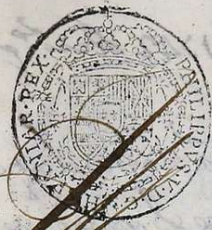 PHILIPPUS.V.D.G. HISPANIAR.REX.